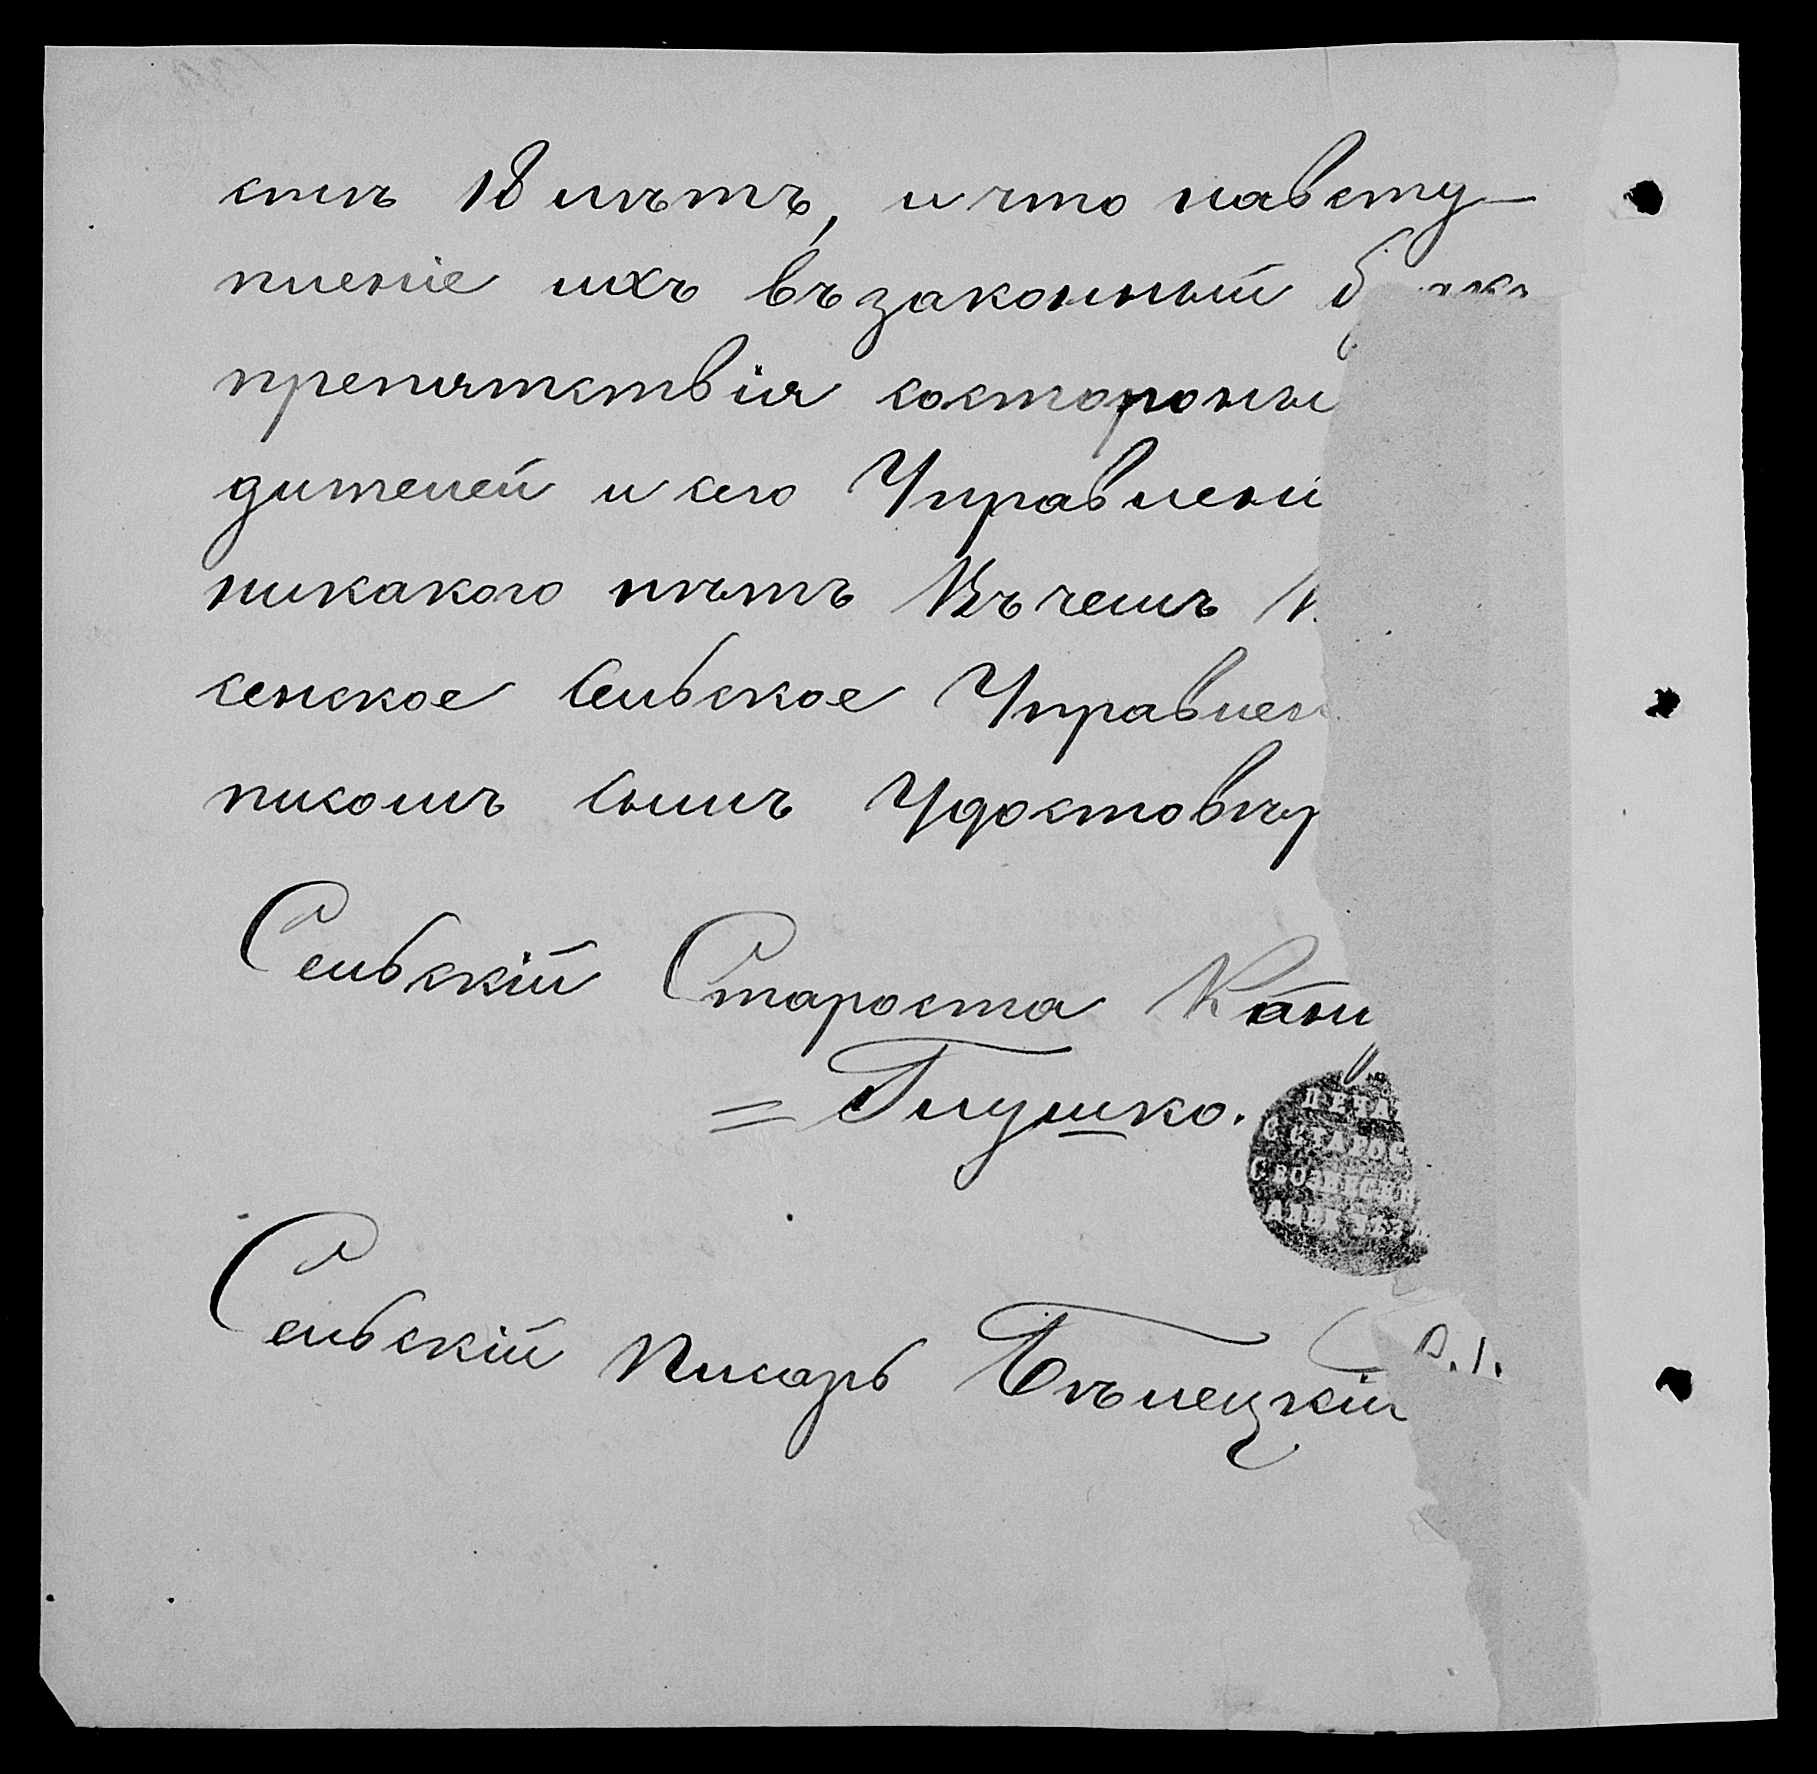 сти 18 лѣтъ, и что на всту-
пленіе ихъ въ законный бракъ
препятствія состороны
дителей и сего Управлені
никакого нѣтъ Въ чемъ
сенское Сельское Управлен
писомъ симъ Удостовѣр
Сельскій Староста
= Глушко.
ПЕЧА
С СТАРОС
С ВОЗНЕСЕН
АЛЕК УЕЗ
Сельскій Писарь Бѣлецкій